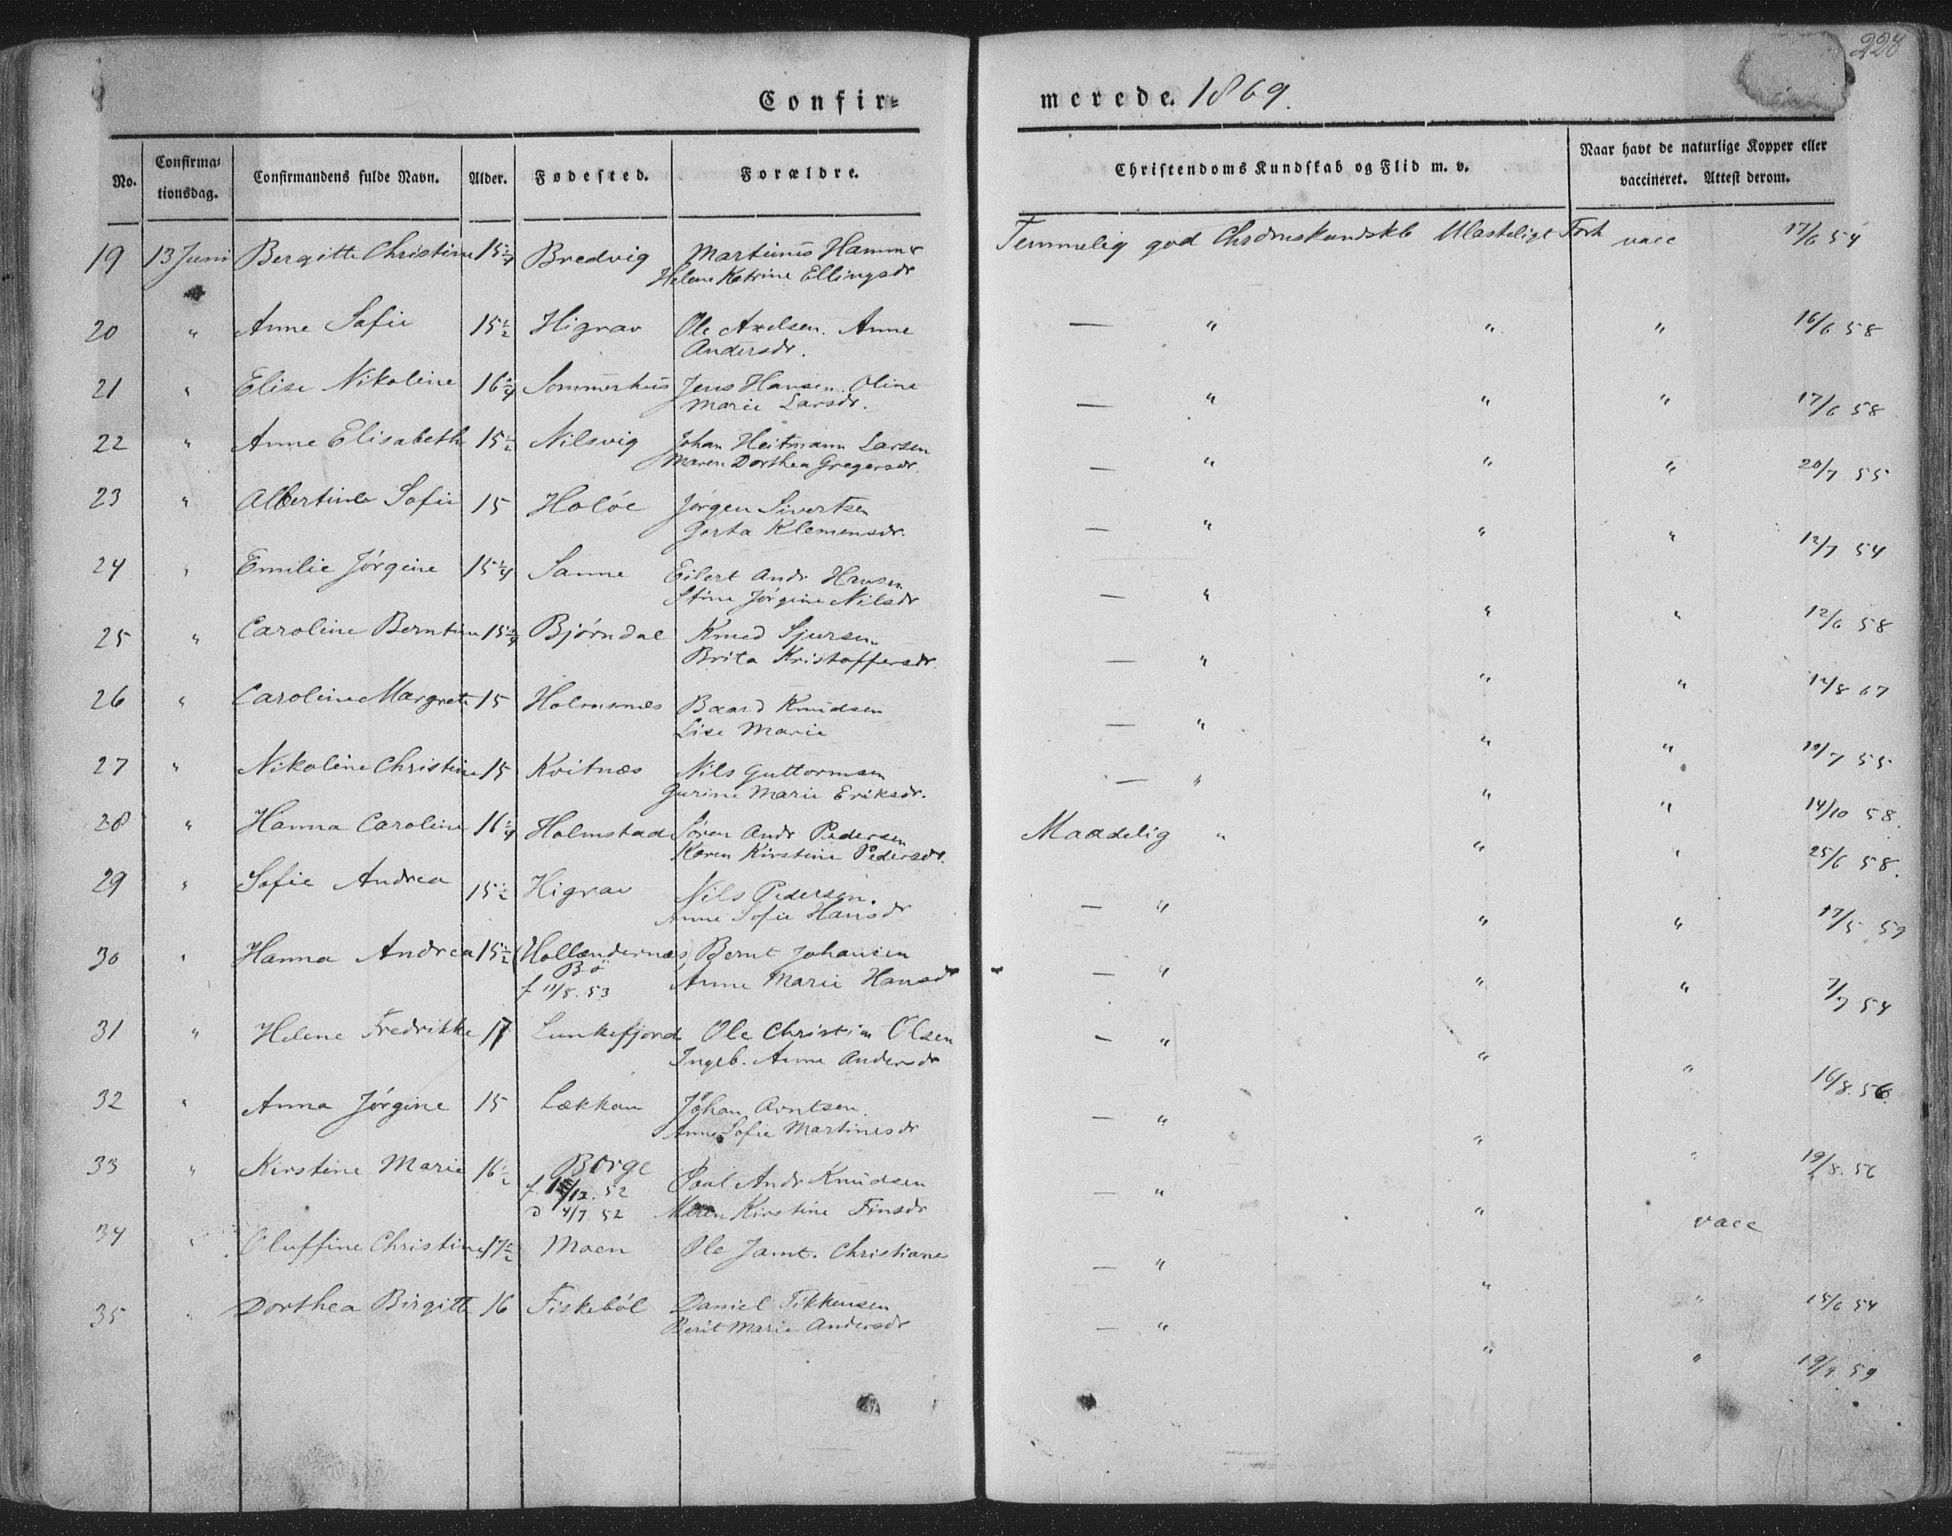 228
Confir- merede. 1869.
No. Confirma-tionsdag. Confirmandens fulde Navn. Alder. Fødested. Forældre. Christendoms Kundskab og Flid m. v. Naar havt de naturlige Kopper eller vaccineret. Attest derom.
19 13 Juni Bergitte Christine 15 1/4 Bredvig Martinus Hammer Temmelig god Ulasteligt Forh vacc 17/6 54
Helene Katrine Ellingsdr
20 " Anne Sofie 15 1/2 Higrav Ole Axelsen. Anne — " " " 16/6 58
Andersdr.
21 " Elise Nikoline 16 1/4 Sommerhus Jens Hansen. Oline — " " " 17/6 58
Marie Larsdr.
22 " Anne Elisabeth 15 1/2 Nilsvig Johan Heitmann Larsen — " " " 20/7 55
Maren Dorthea Gregersdr.
23 " Albertine Sofie 15 Holöe Jørgen Sivertsen — " " " 12/7 54
Gjerta Klemensdr.
24 " Emilie Jørgine 15 1/4 Sanne Eilert Andr Hansen — " " " 12/6 58
Stine Jørgine Nilsdr
25 " Caroline Berntine 15 1/4 Bjørndal Knud Sjursen — " " " 12/8 67
Brita Kristoffersdr.
26 " Caroline Margrete 15 Holmsnæs Baard Knudsen — " " " 19/7 55
Lise Marie
27 " Nikoline Christine 15 Kvitnæs Nils Guttormsen — " " " 14/10 58.
Gurine Marie Eriksdr.
28 " Hanna Caroline 16 1/4 Holmstad Søren Andr Pedersen Maadelig " " " 25/6 58.
Karen Kirstine Pedersdr.
29 " Sofie Andrea 15 1/2 Higrav Nils Pedersen. — " " " 17/5 59
Anne Sofie Hansdr
30 " Hanna Andrea 15 1/2 (Hollændernæs, Bernt Johansen — " " " 7/7 54
Bö
f 11/8. 53 Anne Marie Hansdr
31 " Helene Fredrikke 17 Lunkefjord Ole Christian Olsen — " " " 16/8. 56.
Ingeb. Anne Andersdr
32 " Anna Jørgine 15 Lækkan Johan Arntsen. — " " " 19/8. 56
Anne Sofie Martinesdr
33 " Kirstine Marie 16 1/2 Børge Paul Andr Knudsen — " " vacc
f. /12. 52
D 4/7. 52 Maren Kirstine Finsdr
34 " Oluffine Christine 17 1/2 Moen Ole Jamt. Christiane — " " " 15/6 54
35 " Dorthea Birgitte 16 Fiskeböl Daniel Tikkensen — " " " 19/9. 59
Berit Marie Andersdr